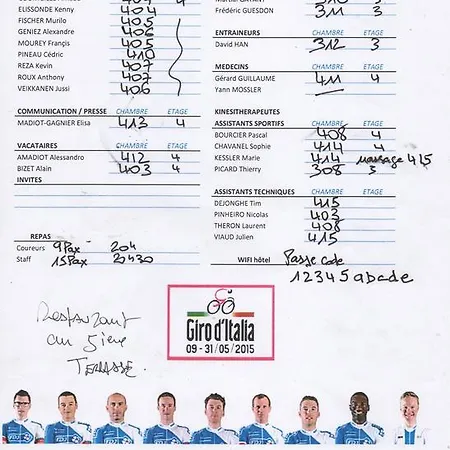 ELISSONDE Kenny 404
FISCHER Murilo 405
GENIEZ Alexandre 406
MOUREY Françis 405
PINEAU Cédric 410
REZA Kevin 407
ROUX Anthony 407
VEIKKANEN Jussi 406
COMMUNICATION / PRESSE CHAMBRE ETAGE
MADIOT-GAGNIER Elisa 413 4
VACATAIRES CHAMBRE ETAGE
AMADIOT Alessandro 412 4
BIZET Alain 403 4
INVITES
REPAS
Coureurs 9Pax 20h
Staff 15Pax 20h30
Frédéric GUESDON 311 3
ENTRAINEURS CHAMBRE ETAGE
David HAN 312 3
MEDECINS CHAMBRE ETAGE
Gérard GUILLAUME 411 4
Yann MOSSLER
KINESITHERAPEUTES
ASSISTANTS SPORTIFS CHAMBRE ETAGE
BOURCIER Pascal 408 4
CHAVANEL Sophie 414 4
KESSLER Marie 414 4 massage 415
PICARD Thierry 308 3
ASSISTANTS TECHNIQUES CHAMBRE ETAGE
DEJONGHE Tim 415
PINHEIRO Nicolas 403
THERON Laurent 408
VIAUD Julien 415
WIFI hôtel Passe code
12345abcde
Restaurant
au 5ième
TERRASSE.
Giro d'Italia
09 - 31/05/2015